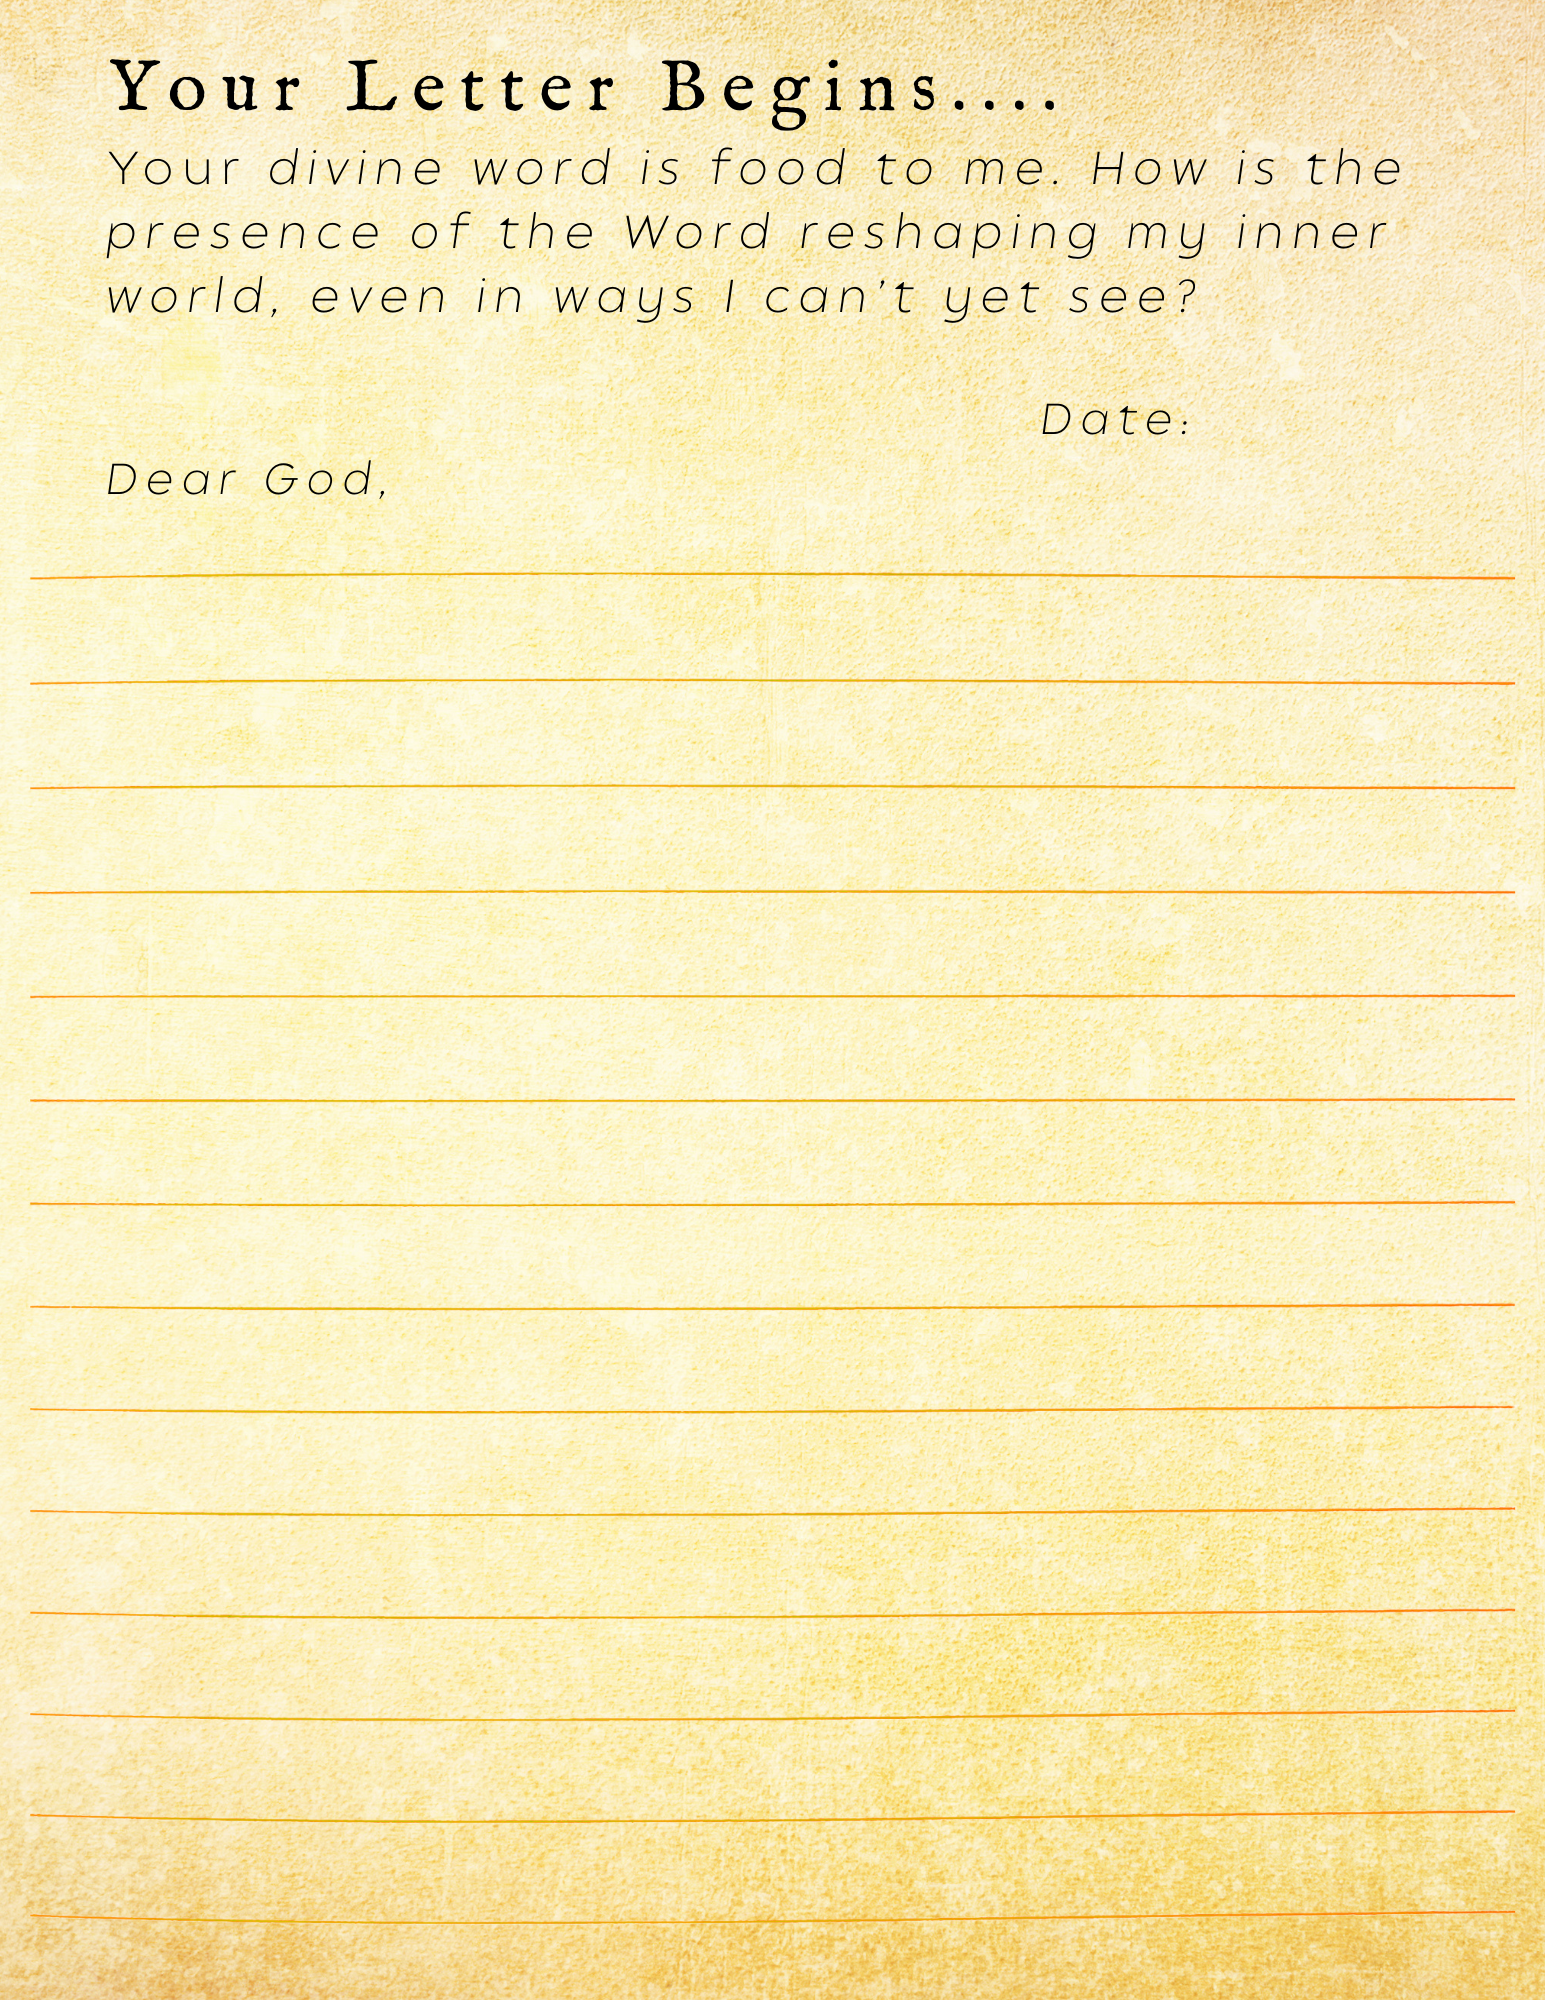 Your Letter Begins....
Your divine word is food to me. How is the
presence of the Word reshaping my inner
world, even in ways I can't yet see?
Date:
Dear God,